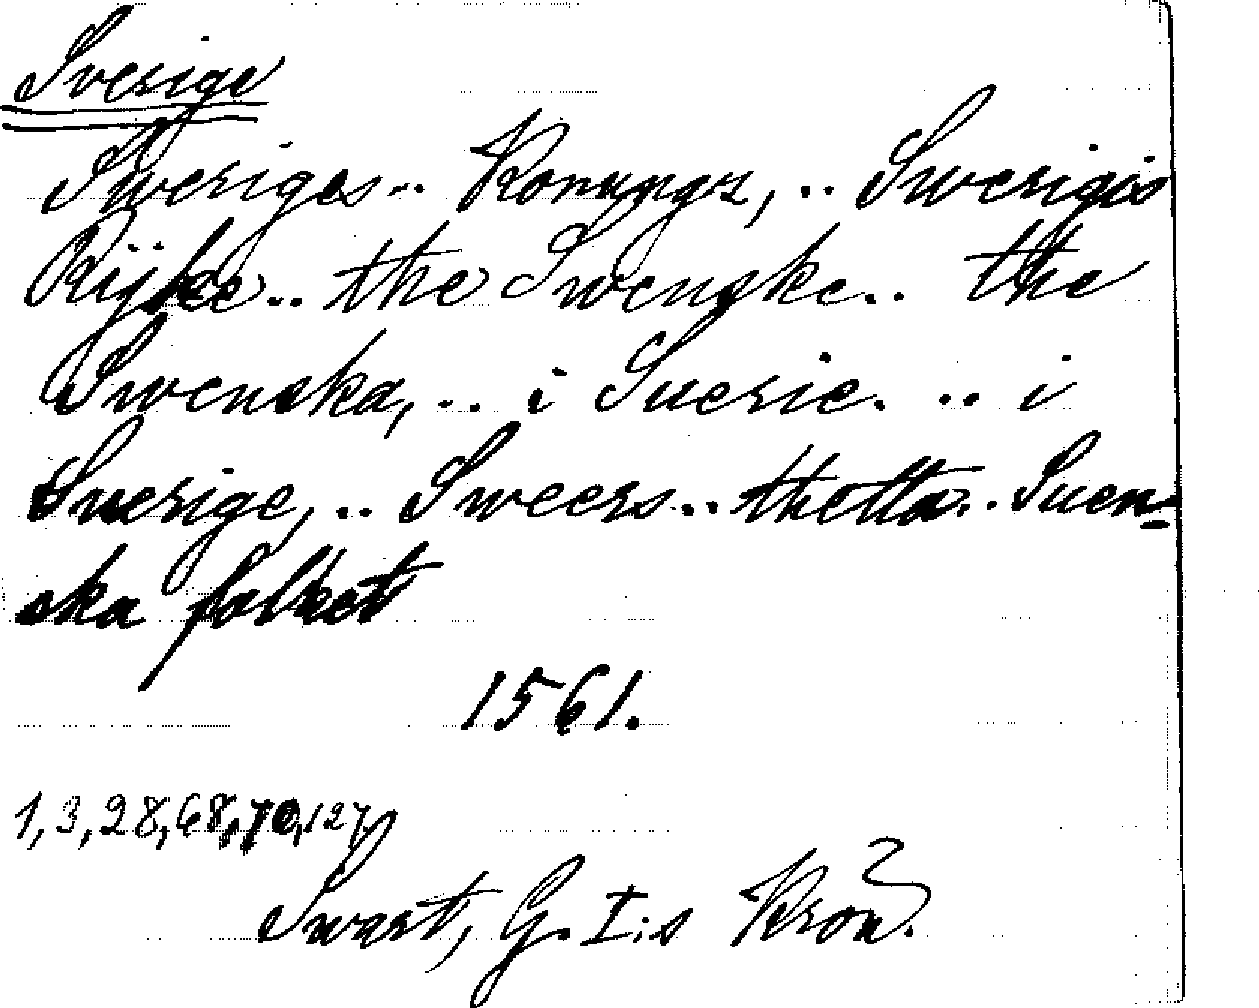 Sverige
Sweriges.. Konungz, .. Swerigis
Rijkee.. the Swenske.. the
Swenska, .. i Suerie. .. i
Suerige, .. Sweers.. thetta.. Suen-
ska folket
1561.
1,3,28,68,70,127
Swart, G. I:s Krön.